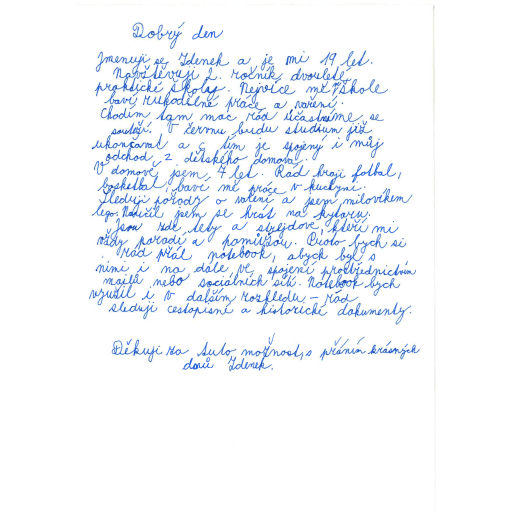 Dobrý den
Jmenuji se Zdenek a je mi 19 let.
Navštěvuji 2. ročník dvouleté
praktické školy. Nejvíce mě ve škole
baví rukodělné práce a vaření.
Chodím tam moc rád účastníme se
soutěží. V červnu budu studium již
ukončovat a s tím je spojený i můj
odchod z dětského domova.
V domově jsem 7 let. Rád hraji fotbal,
basketbal, baví mě práce v kuchyni.
Sleduji pořady o vaření a jsem milovníkem
lega. Naučil jsem se hrát na kytaru.
Jsou zde tety a strejdové, kteří mi
vždy poradí a pomůžou. Proto bych si
rád přál notebook, abych byl s
nimi i na dále ve spojení prostřednictvím
mailů nebo sociálních sítí. Notebook bych
využil i v dalším rozhledu - rád
sleduji cestopisné a historické dokumenty.
Děkuji za tuto možnost, s přáním krásných
dnů Zdenek.